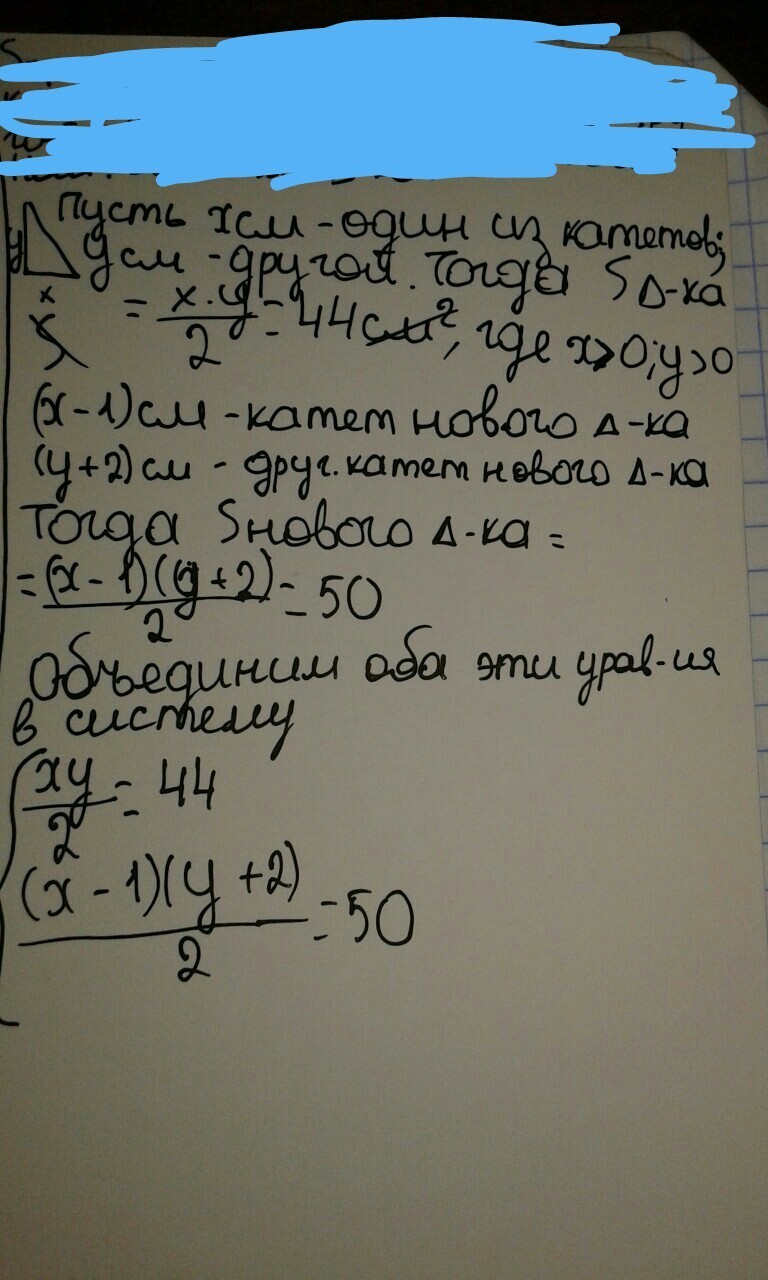 Пусть x см - один из катетов;
y см - другой. Тогда S Δ-ка
y
x
= x·y/2 = 44 см², где x>0; y>0
(x-1) см - катет нового Δ-ка
(y+2) см - друг. катет нового Δ-ка
Тогда S нового Δ-ка =
= (x-1)(y+2)/2 = 50
Объединим оба эти урав-ия
в систему
xy/2 = 44
(x-1)(y+2)/2 = 50